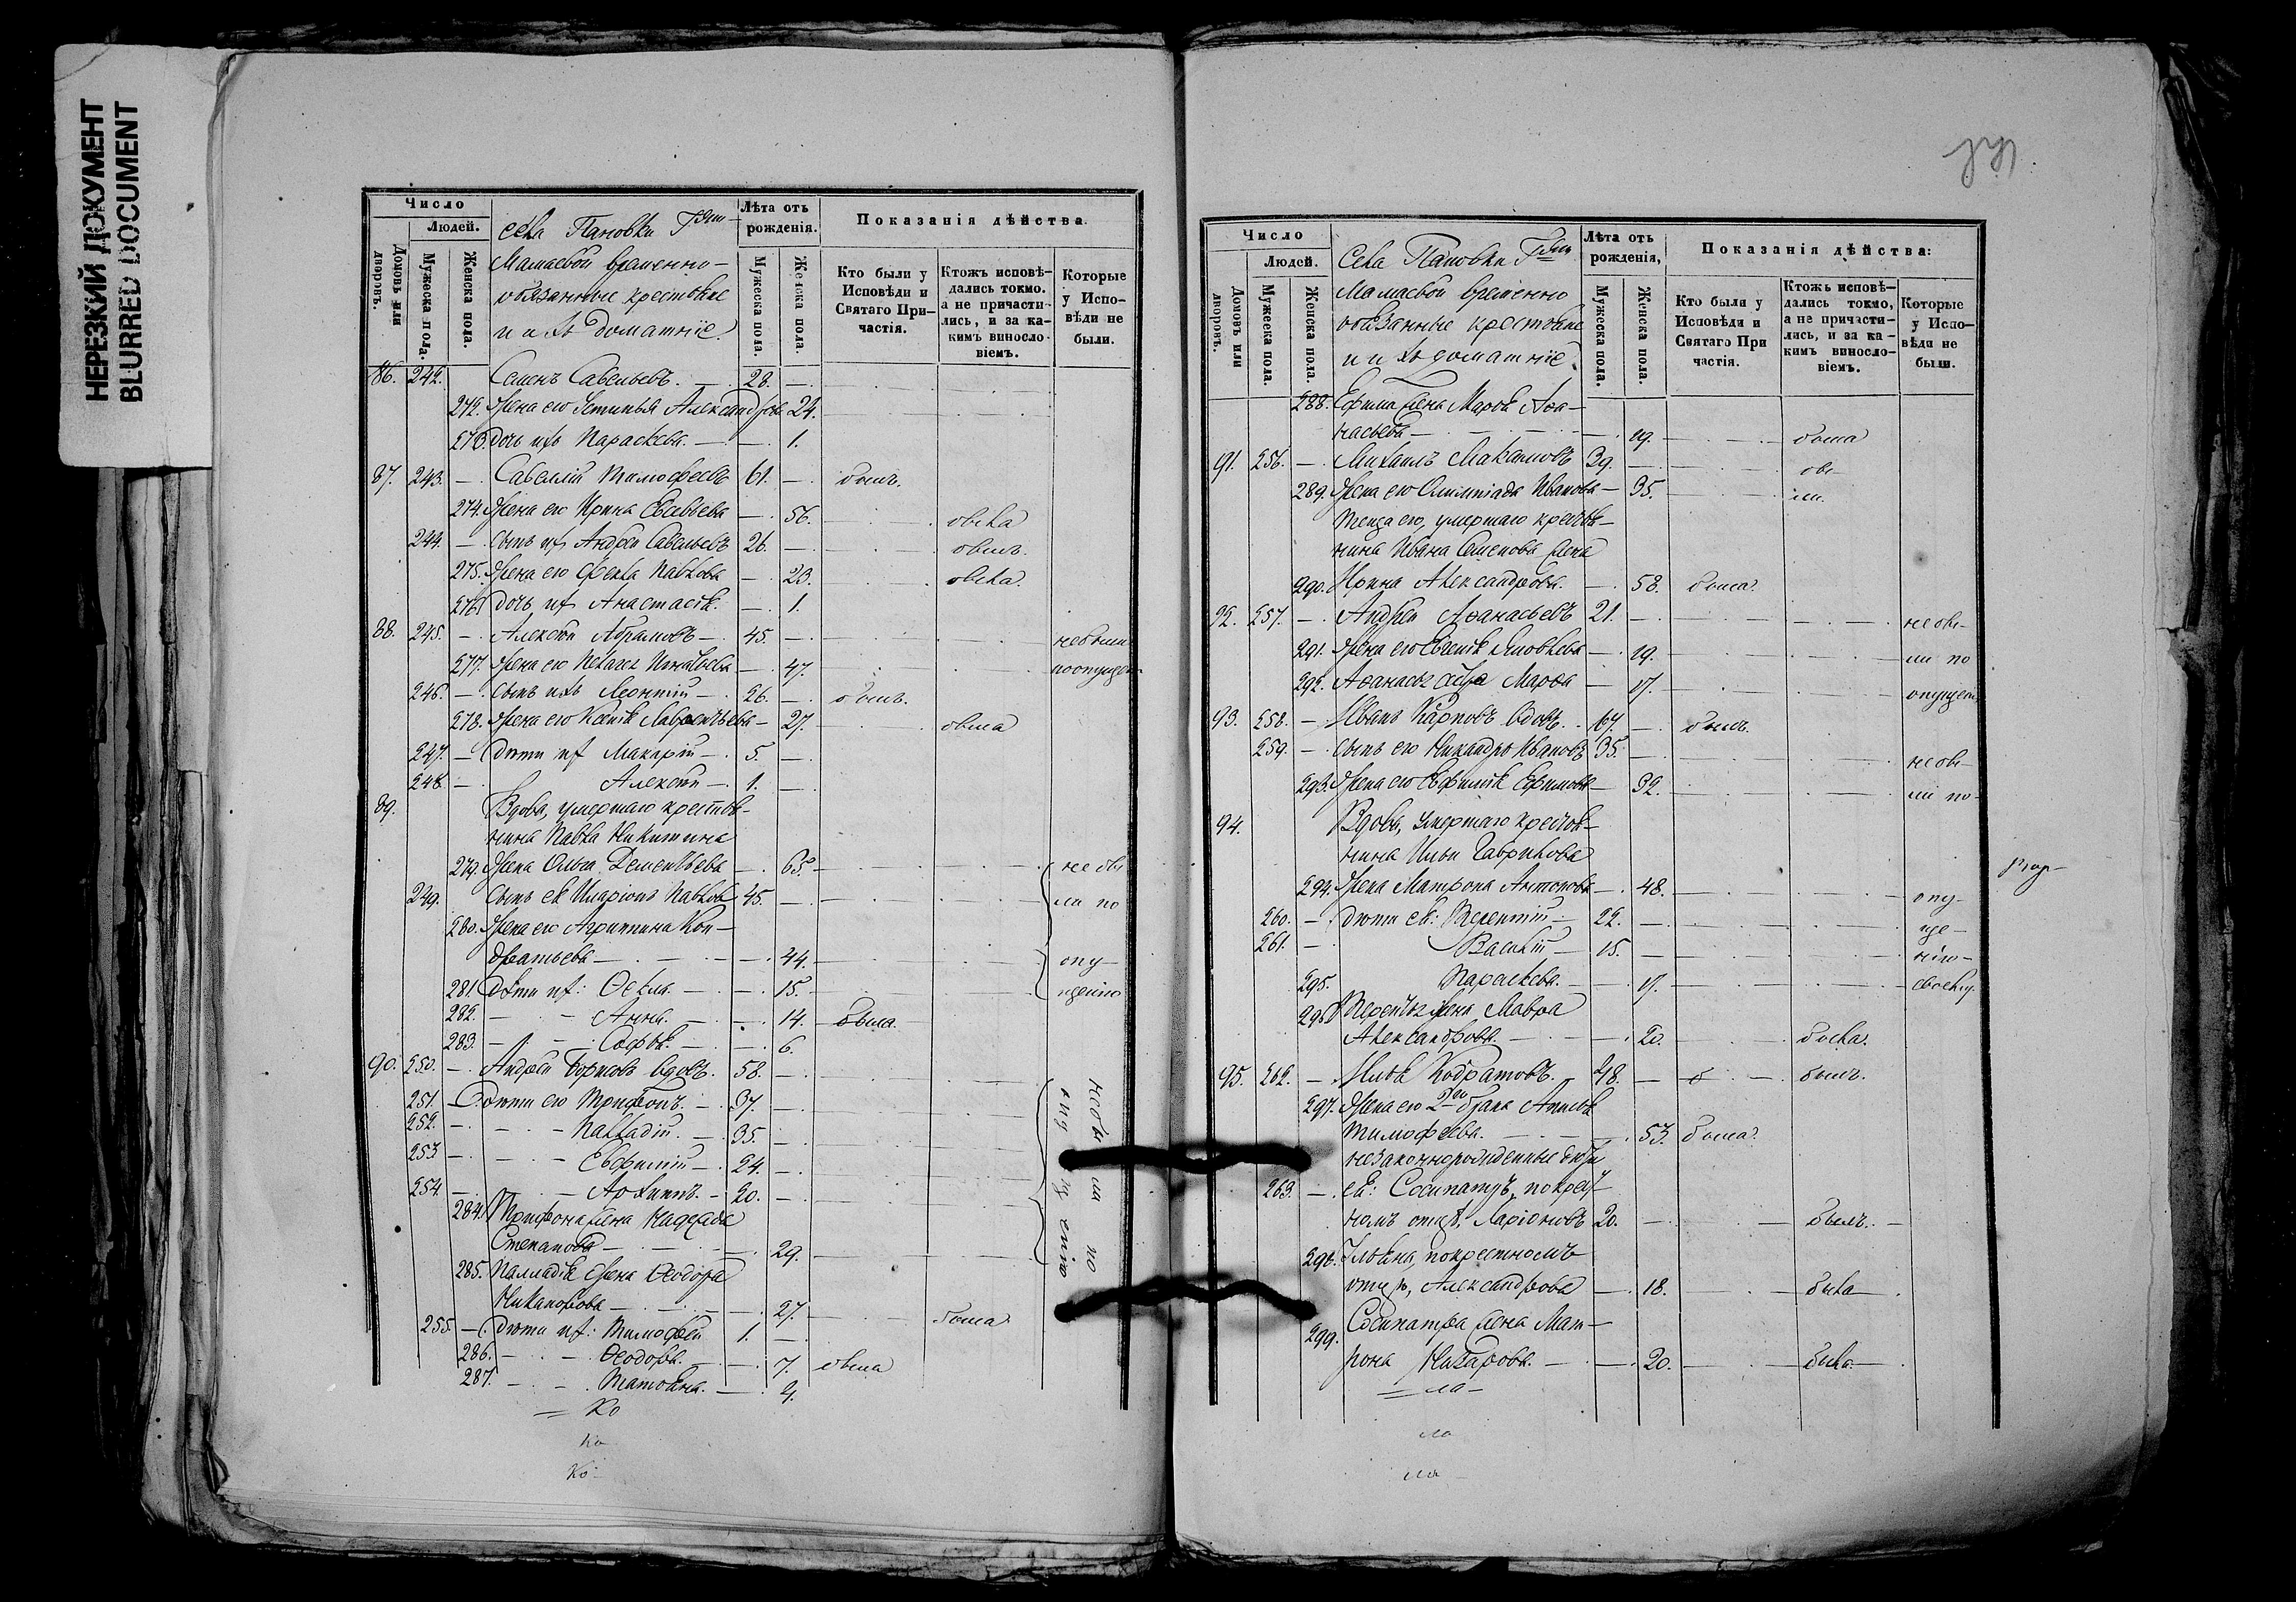 НЕРЕЗКИЙ ДОКУМЕНТ
BLURRED DOCUMENT
Число
Людей.
Домовъ или дворовъ.
Мужеска пола.
Женска пола.
села Пановки Гжи
Мамаевой временно-
обязанные крестьяне
и ихъ домашніе.
Лѣта отъ рожденія.
Мужеска пола.
Женска пола.
Показанія дѣйства.
Кто были у Исповѣди и Святаго Причастія.
Ктожъ исповѣдались токмо. а не причастились, и за какимъ винословіемъ.
Которые у Исповѣди не были.
86. 242. Семенъ Савельевъ. — 28. —
272. Жена его Устинья Александрова 24.
273. Дочь ихъ Параскева. — — 1.
87. 243. — Савелій Тимофеевъ 61. — былъ.
274. Жена его Ирина Евсевьева — 56. была
244. — Сынъ ихъ Андрей Савельевъ 26. — былъ.
275. Жена его Фекла Павлова — 23. была.
276. Дочь ихъ Анастасія. — 1.
88. 245. — Алексѣй Абрамовъ — 45. — небыли
277. Жена его Пелагея Игнатьева — 47. поопущен
246. — Сынъ ихъ Леонтій — 26. — былъ.
278. Жена его Ксенія Лаврентьева — 27. была
247. — Дѣти ихъ Макарій — 5. —
248. — Алексѣй — 1. —
89. Вдова, умершаго крестья-
нина Павла Никитина
279. Жена Ольга Дементьева — 65. не бы
249. Сынъ ея Иларіонъ Павловъ 45. — ли по
280. Жена его Агриппина Кон-
дратьева — 44. опу-
281. Дѣти ихъ: Ѳекла. — 15. щенію
282. — Анна. — 14. была.
283. — Софья. — 6.
90. 250. — Андрей Борисовъ вдовъ. 58. —
251. — Дѣти его Трифонъ. — 37. —
252. — Палладій. — 35. —
253. — Евфимій — 24. —
254. — Іоакимъ. — 20. —
небыли по
опущенію
284. Трифона жена Надежда
Степанова — 29.
285. Палладія жена Ѳеодора
Никанорова — 27. была
255. — Дѣти ихъ: Тимофей 1. —
286. — Ѳеодора. — 7. была
287. — Татьяна. — 4.
Ко
Ко
Ко
Число
Людей.
Домовъ или дворовъ.
Мужеска пола.
Женска пола.
Села Пановки Гжи
Мамаевой временно
обязанные крестьяне
и ихъ домашніе.
Лѣта отъ рожденія,
Мужеска пола.
Женска пола.
Показанія дѣйства:
Кто были у Исповѣди и Святаго При частія.
Ктожъ исповѣдались токмо, а не причастились, и за какимъ винословіемъ.
Которые у Исповѣди не были.
288. Ефима жена Марѳа Аѳа-
насьева — 19. была
91. 256. — Михаилъ Максимовъ 39. — бы-
289. Жена его Олимпіада Иванова — 35. ли.
Теща его, умершаго крестья-
нина Ивана Семенова жена
290. Ирина Александрова. — 58. была.
92. 257. — Андрей Аѳанасьевъ 21. — не бы-
291. Жена его Евгенія Яковлева — 19. ли по
292. Аѳанасья сестра Марѳа — 17. опущен.
93. 258. — Иванъ Карповъ вдовъ. 67. — былъ.
259. — Сынъ его Никандръ Ивановъ 35. — не бы-
293. Жена его Евфимія Ефимова — 32. ли по-
94. Вдова, умершаго крестья-
нина Ильи Гаврилова
294. Жена Матрона Антонова — 48. опу-
260. — Дѣти ея: Терентій — 22. — ще-
261. — Василій — 15. — нію-
295. Параскева. — 17. своему
296. Терентья жена Мавра
Александрова. — 20. была.
95. 262. — Илья Кодратовъ. 48. — былъ.
297. Жена его 2го брака Анисья
Тимофеева. — 53. была.
незаконнорожденные дѣти
263. — ея: Сосипатръ, по крест-
номъ отцѣ, Ларіоновъ 20. — былъ. —
298. Ульяна, по крестномъ
отцѣ, Александрова — 18. была —
Сосипатра жена Мат-
299. рона Макарова. — 20. была —
ла-
ла
ла